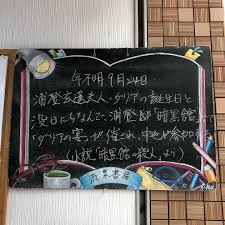 年不明9月24日
浦登玄遙夫人・ダリアの誕生日と
命日にちなんで、浦登邸「暗黒館」にて
「ダリアの宴」が催され、中也が参加
(小説「暗黒館の殺人」より)
流泉書房